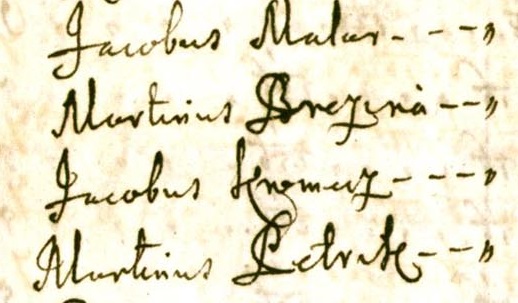 Jacobus Malar - - - "
Martinus Brezina - - "
Jacobus Kromerz - - - "
Martinus Petrik - - "